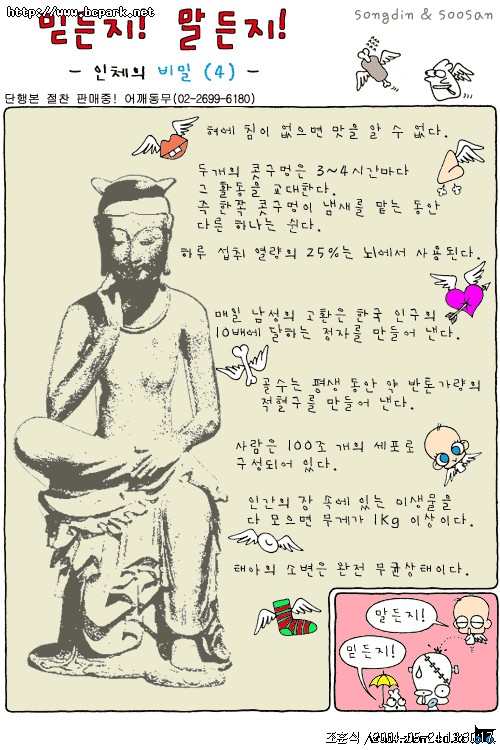 http://www.hcpark.net
믿든지! 말든지!
songdin & soosan
- 인체의 비밀 (4) -
단행본 절찬 판매중! 어깨동무(02-2699-6180)
혀에 침이 없으면 맛을 알 수 없다.
두개의 콧구멍은 3~4시간마다
그 활동을 교대한다.
즉 한쪽 콧구멍이 냄새를 맡는 동안
다른 하나는 쉰다.
하루 섭취 열량의 25%는 뇌에서 사용된다.
매일 남성의 고환은 한국 인구의
10배에 달하는 정자를 만들어 낸다.
골수는 평생 동안 약 반톤가량의
적혈구를 만들어 낸다.
사람은 100조 개의 세포로
구성되어 있다.
인간의 장 속에 있는 미생물을
다 모으면 무게가 1Kg 이상이다.
태아의 소변은 완전 무균상태이다.
말든지!
믿든지!
조훈식